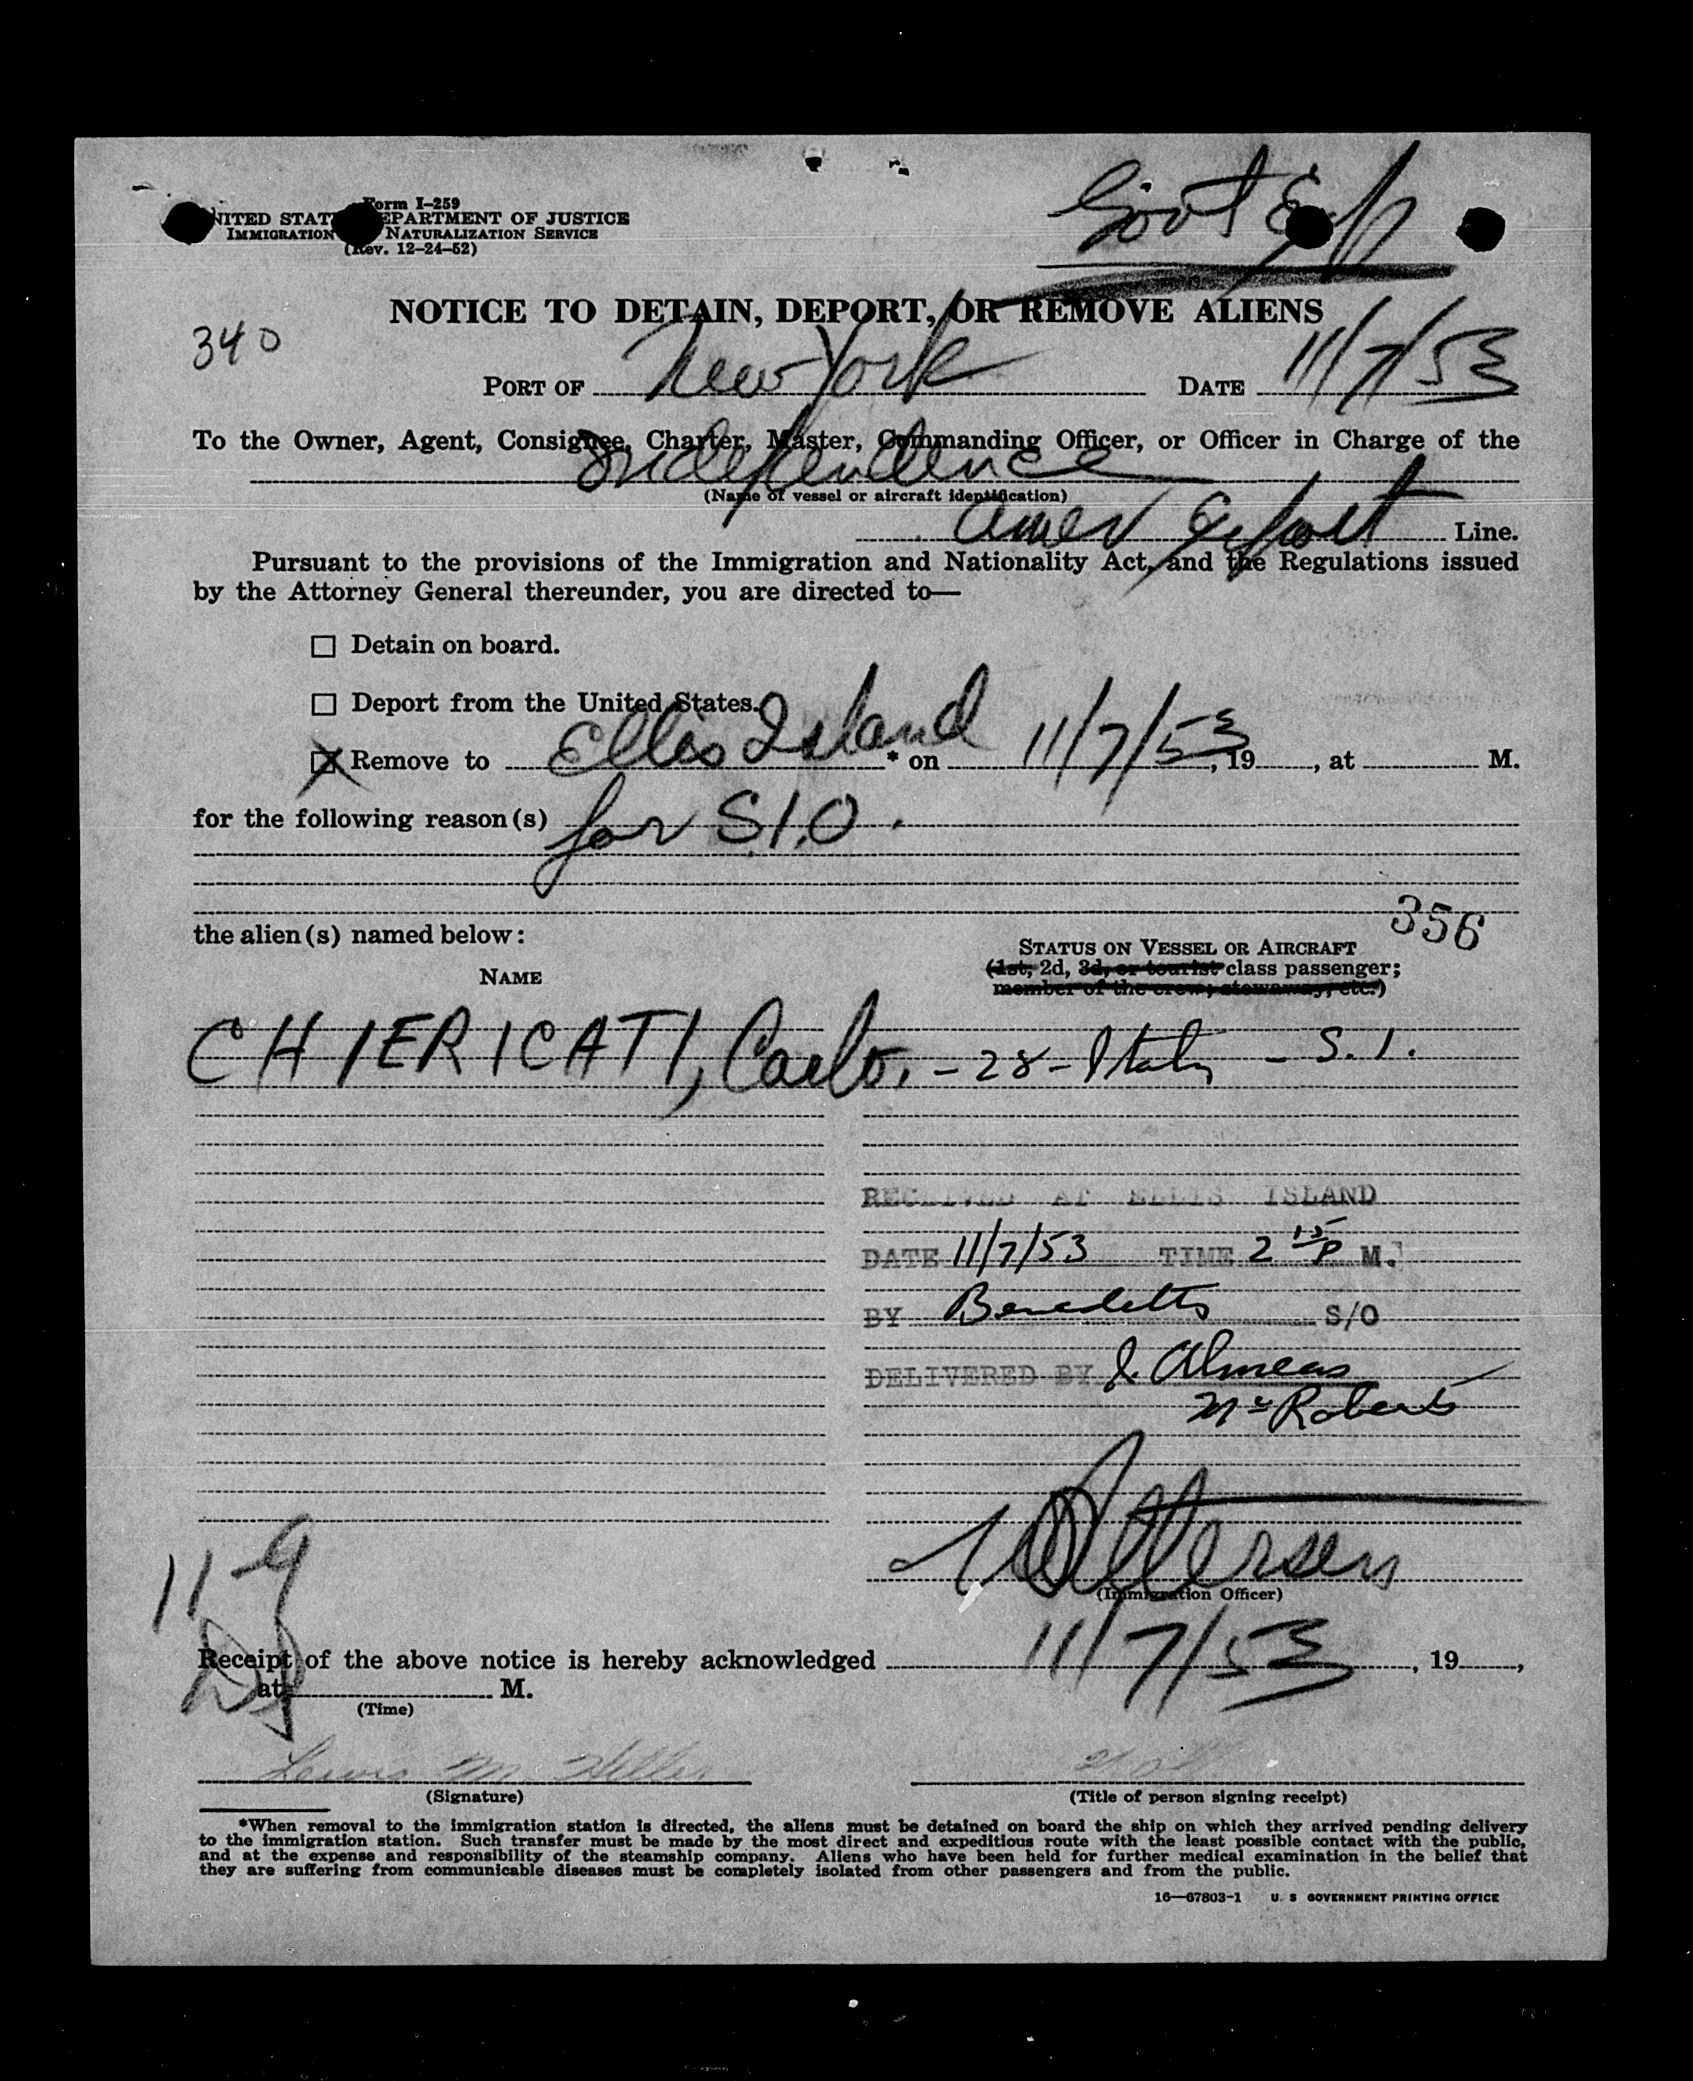 Form I-259
UNITED STATES DEPARTMENT OF JUSTICE
IMMIGRATION NATURALIZATION SERVICE
(Rev. 12-24-52)
Gov't Exp
NOTICE TO DETAIN, DEPORT, OR REMOVE ALIENS
340
PORT OF New York DATE 11/7/53
To the Owner, Agent, Consignee, Charter, Master, Commanding Officer, or Officer in Charge of the
Independence
(Name of vessel or aircraft identification)
Amer Export Line.
Pursuant to the provisions of the Immigration and Nationality Act, and the Regulations issued
by the Attorney General thereunder, you are directed to—
☐ Detain on board.
☐ Deport from the United States.
☒ Remove to Ellis Island * on 11/7/53, 19, at M.
for the following reason(s) for S.I.O.
356
the alien(s) named below:
STATUS ON VESSEL OR AIRCRAFT
NAME
(1st, 2d, 3d, or tourist class passenger;
member of the crew; stowaway, etc.)
CHIERICATI, Carlo, - 28 - Italy - S.I.
RECEIVED AT ELLIS ISLAND
DATE 11/7/53 TIME 2 15 P M.
BY S/O
DELIVERED BY J.
McRoberts
(Immigration Officer)
11-9
Receipt of the above notice is hereby acknowledged 11/7/53, 19,
at M.
(Time)
Lewis M.
(Signature)
(Title of person signing receipt)
*When removal to the immigration station is directed, the aliens must be detained on board the ship on which they arrived pending delivery
to the immigration station. Such transfer must be made by the most direct and expeditious route with the least possible contact with the public,
and at the expense and responsibility of the steamship company. Aliens who have been held for further medical examination in the belief that
they are suffering from communicable diseases must be completely isolated from other passengers and from the public.
16—67803-1 U. S GOVERNMENT PRINTING OFFICE